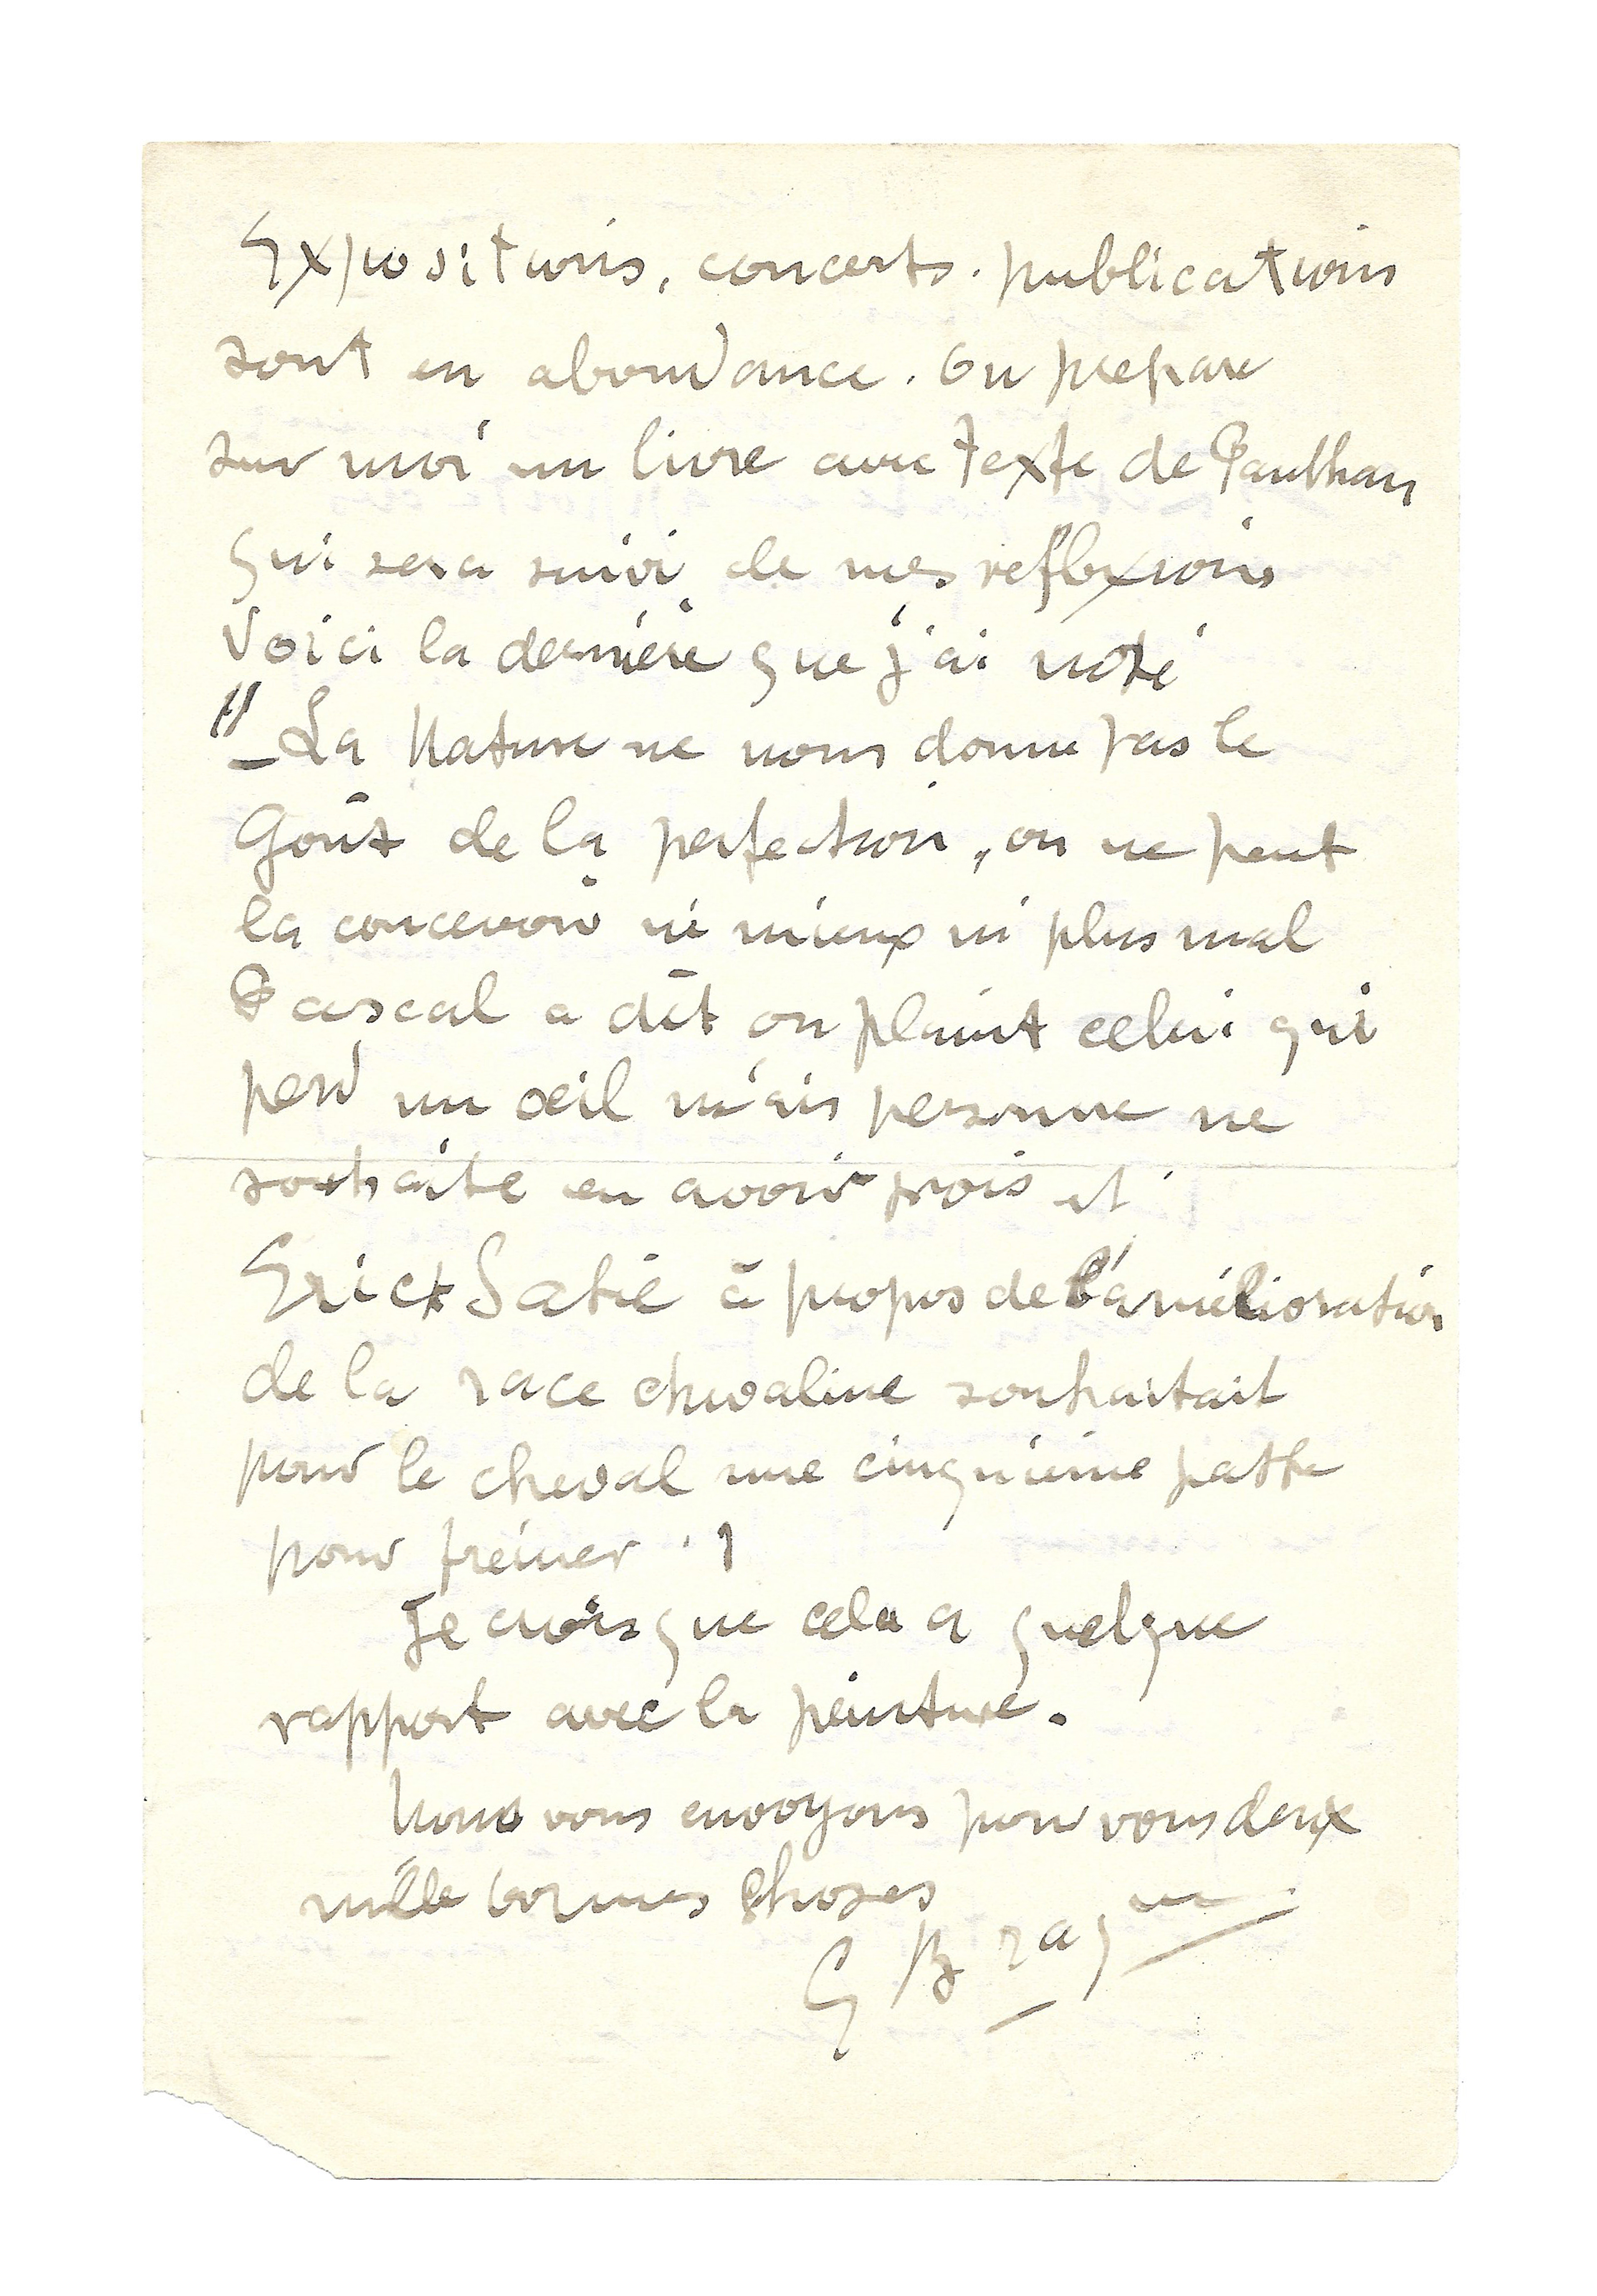 Expositions, concerts. publications
sont en abondance. On prepare
sur moi un livre avec texte de Paulhan
qui sera suivi de mes reflexions
Voici la dernière que j'ai noté
"–La Nature ne nous donne pas le
Goût de la perfection, on ne peut
la concevoir ni mieux ni plus mal
Pascal a dit on plaint celui qui
perd un œil mais personne ne
souhaite en avoir trois et
Erick Satie à propos de l'amélioration
de la race chevaline souhaitait
pour le cheval une cinquième patte
pour freiner !
Je crois que cela a quelque
rapport avec la peinture.
Nous vous envoyons pour vous deux
mille bonnes choses
G Braque